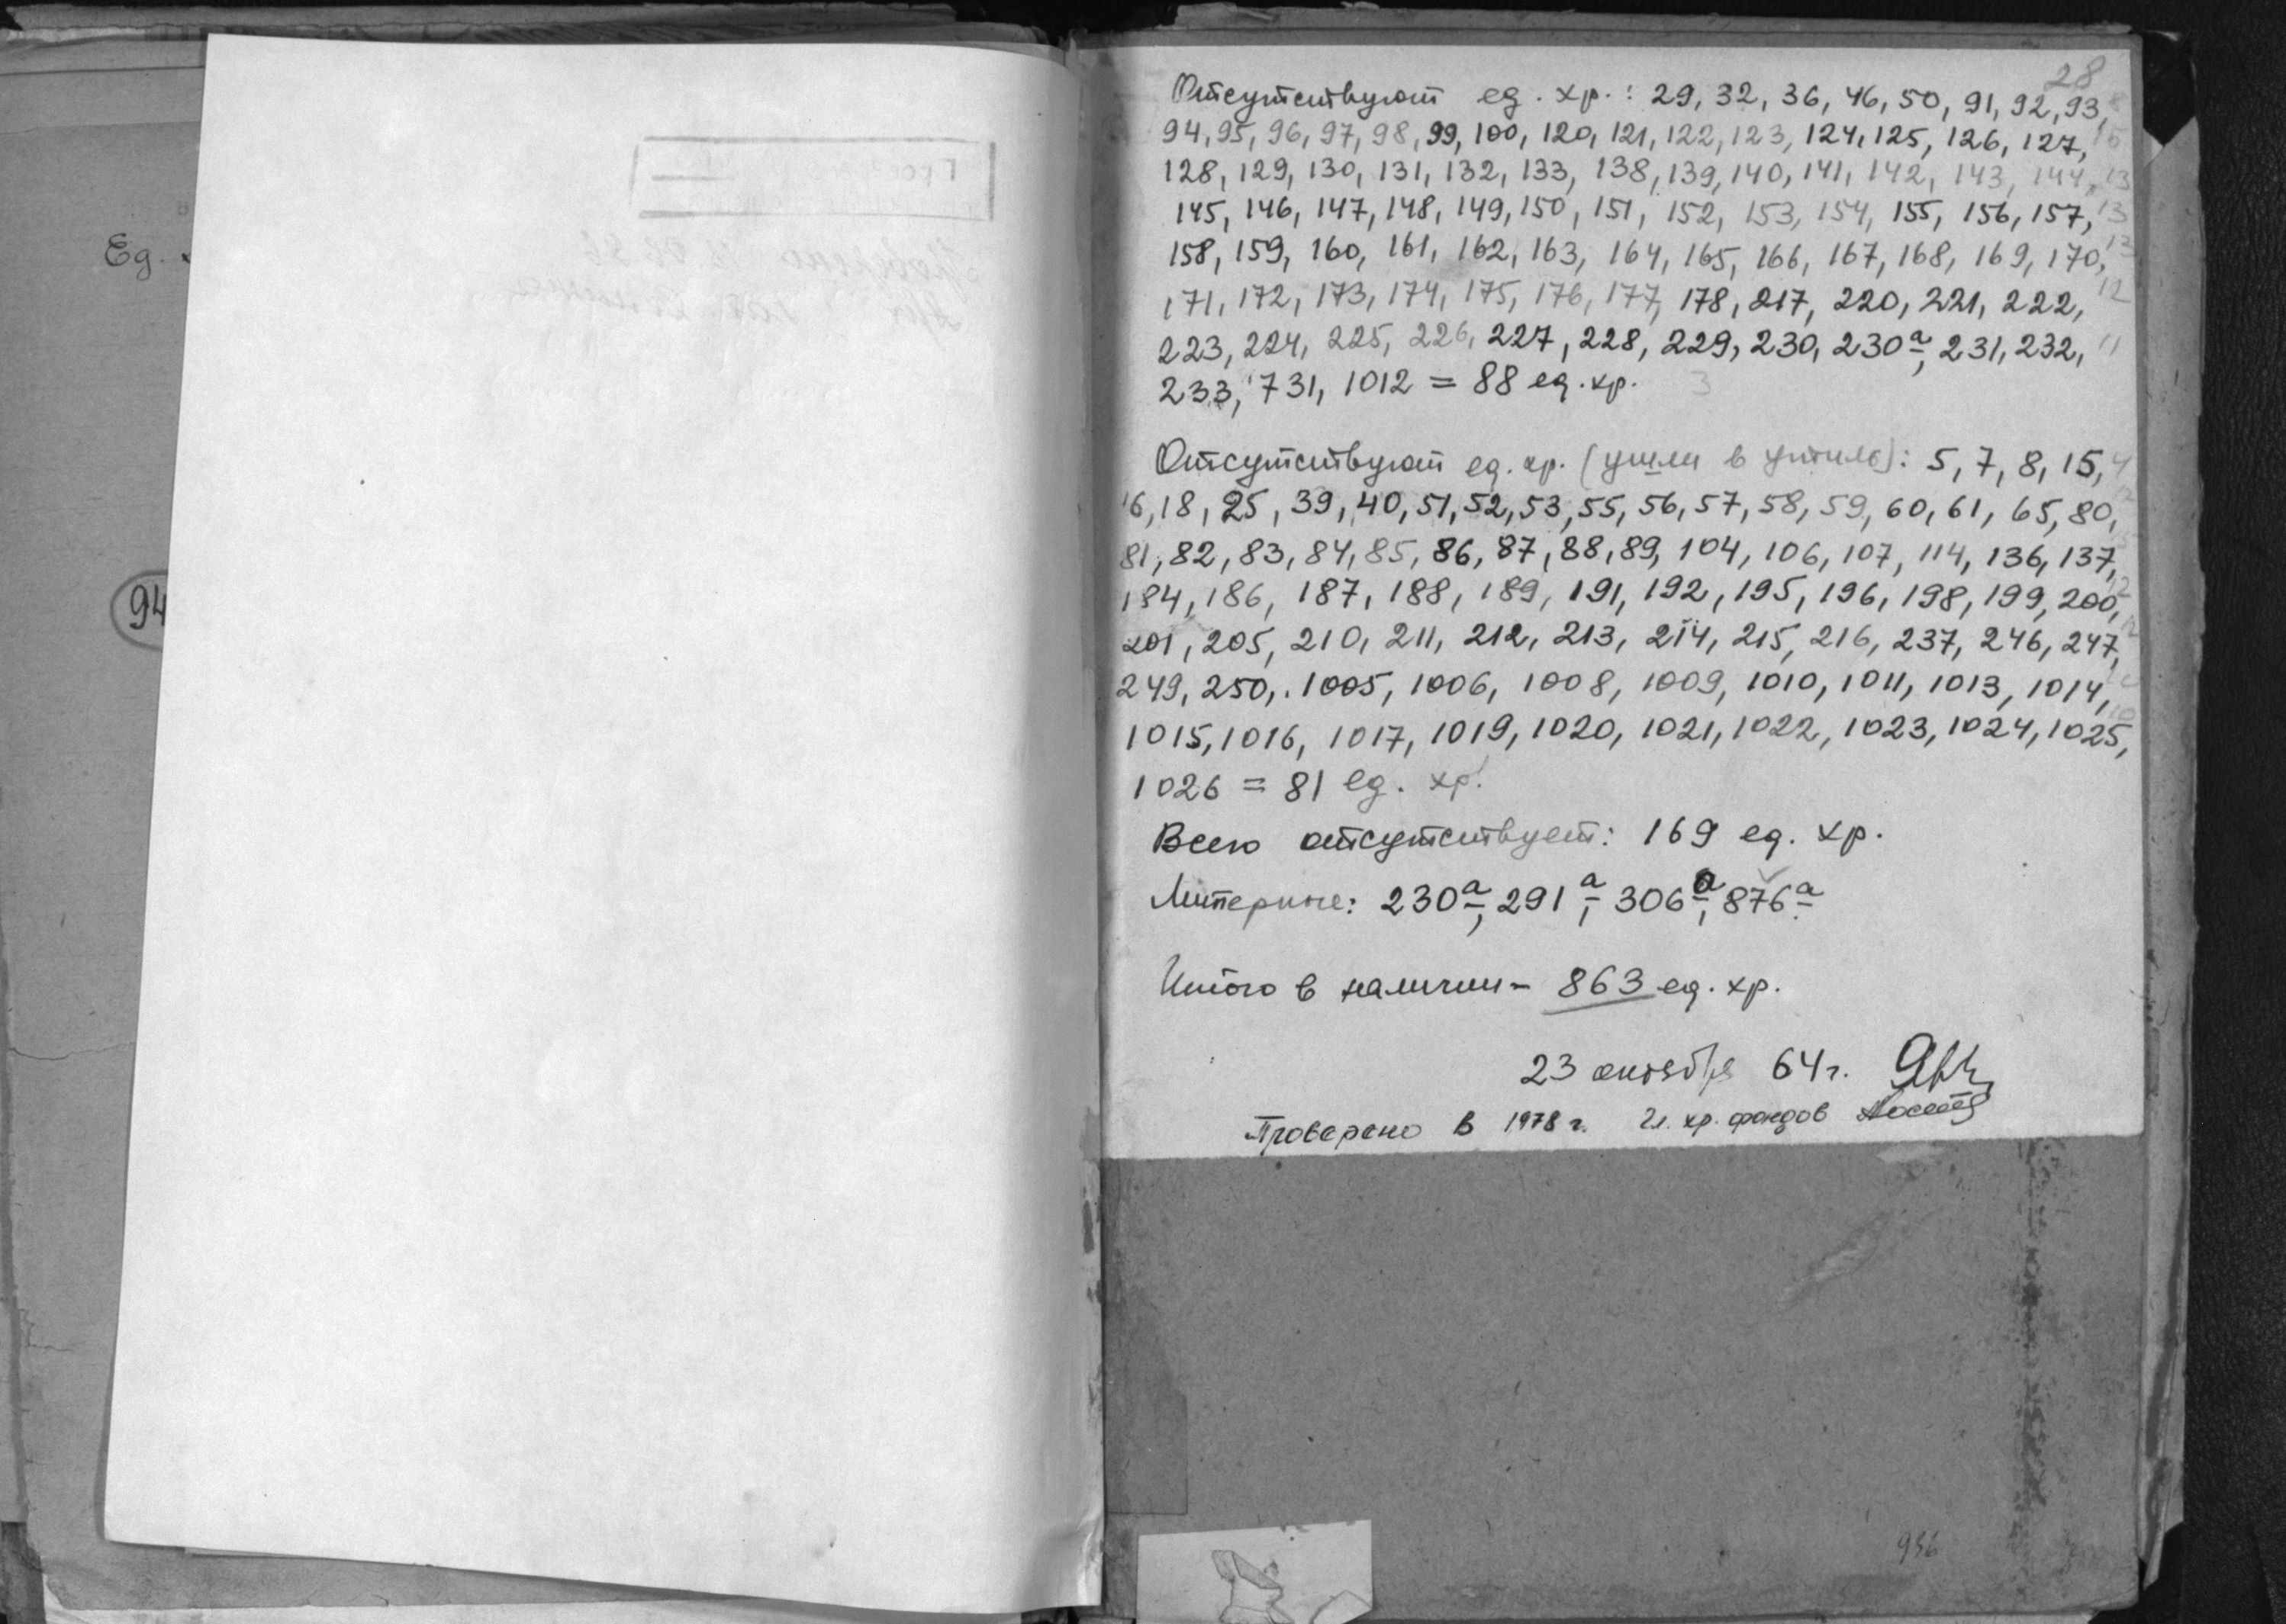 Ед.
94
28
Отсутствуют ед. хр.: 29, 32, 36, 46, 50, 91, 92, 93,
94, 95, 96, 97, 98, 99, 100, 120, 121, 122, 123, 124, 125, 126, 127, 15
128, 129, 130, 131, 132, 133, 138, 139, 140, 141, 142, 143, 144, 13
145, 146, 147, 148, 149, 150, 151, 152, 153, 154, 155, 156, 157, 13
158, 159, 160, 161, 162, 163, 164, 165, 166, 167, 168, 169, 170, 13
171, 172, 173, 174, 175, 176, 177, 178, 217, 220, 221, 222, 12
223, 224, 225, 226, 227, 228, 229, 230, 230а, 231, 232, 11
233, 731, 1012 = 88 ед. хр. 3
Отсутствуют ед. хр. (ушли в утиль): 5, 7, 8, 15, 4
16, 18, 25, 39, 40, 51, 52, 53, 55, 56, 57, 58, 59, 60, 61, 65, 80,
81, 82, 83, 84, 85, 86, 87, 88, 89, 104, 106, 107, 114, 136, 137,
184, 186, 187, 188, 189, 191, 192, 195, 196, 198, 199, 200, 12
201, 205, 210, 211, 212, 213, 214, 215, 216, 237, 246, 247, 12
249, 250, 1005, 1006, 1008, 1009, 1010, 1011, 1013, 1014, 10
1015, 1016, 1017, 1019, 1020, 1021, 1022, 1023, 1024, 1025, 10
1026 = 81 ед. хр.
Всего отсутствует: 169 ед. хр.
Литерные: 230а, 291а, 306а, 876а.
Итого в наличии - 863 ед. хр.
23 октября 64 г.
Проверено в 1978 г. Гл. хр. фондов
936